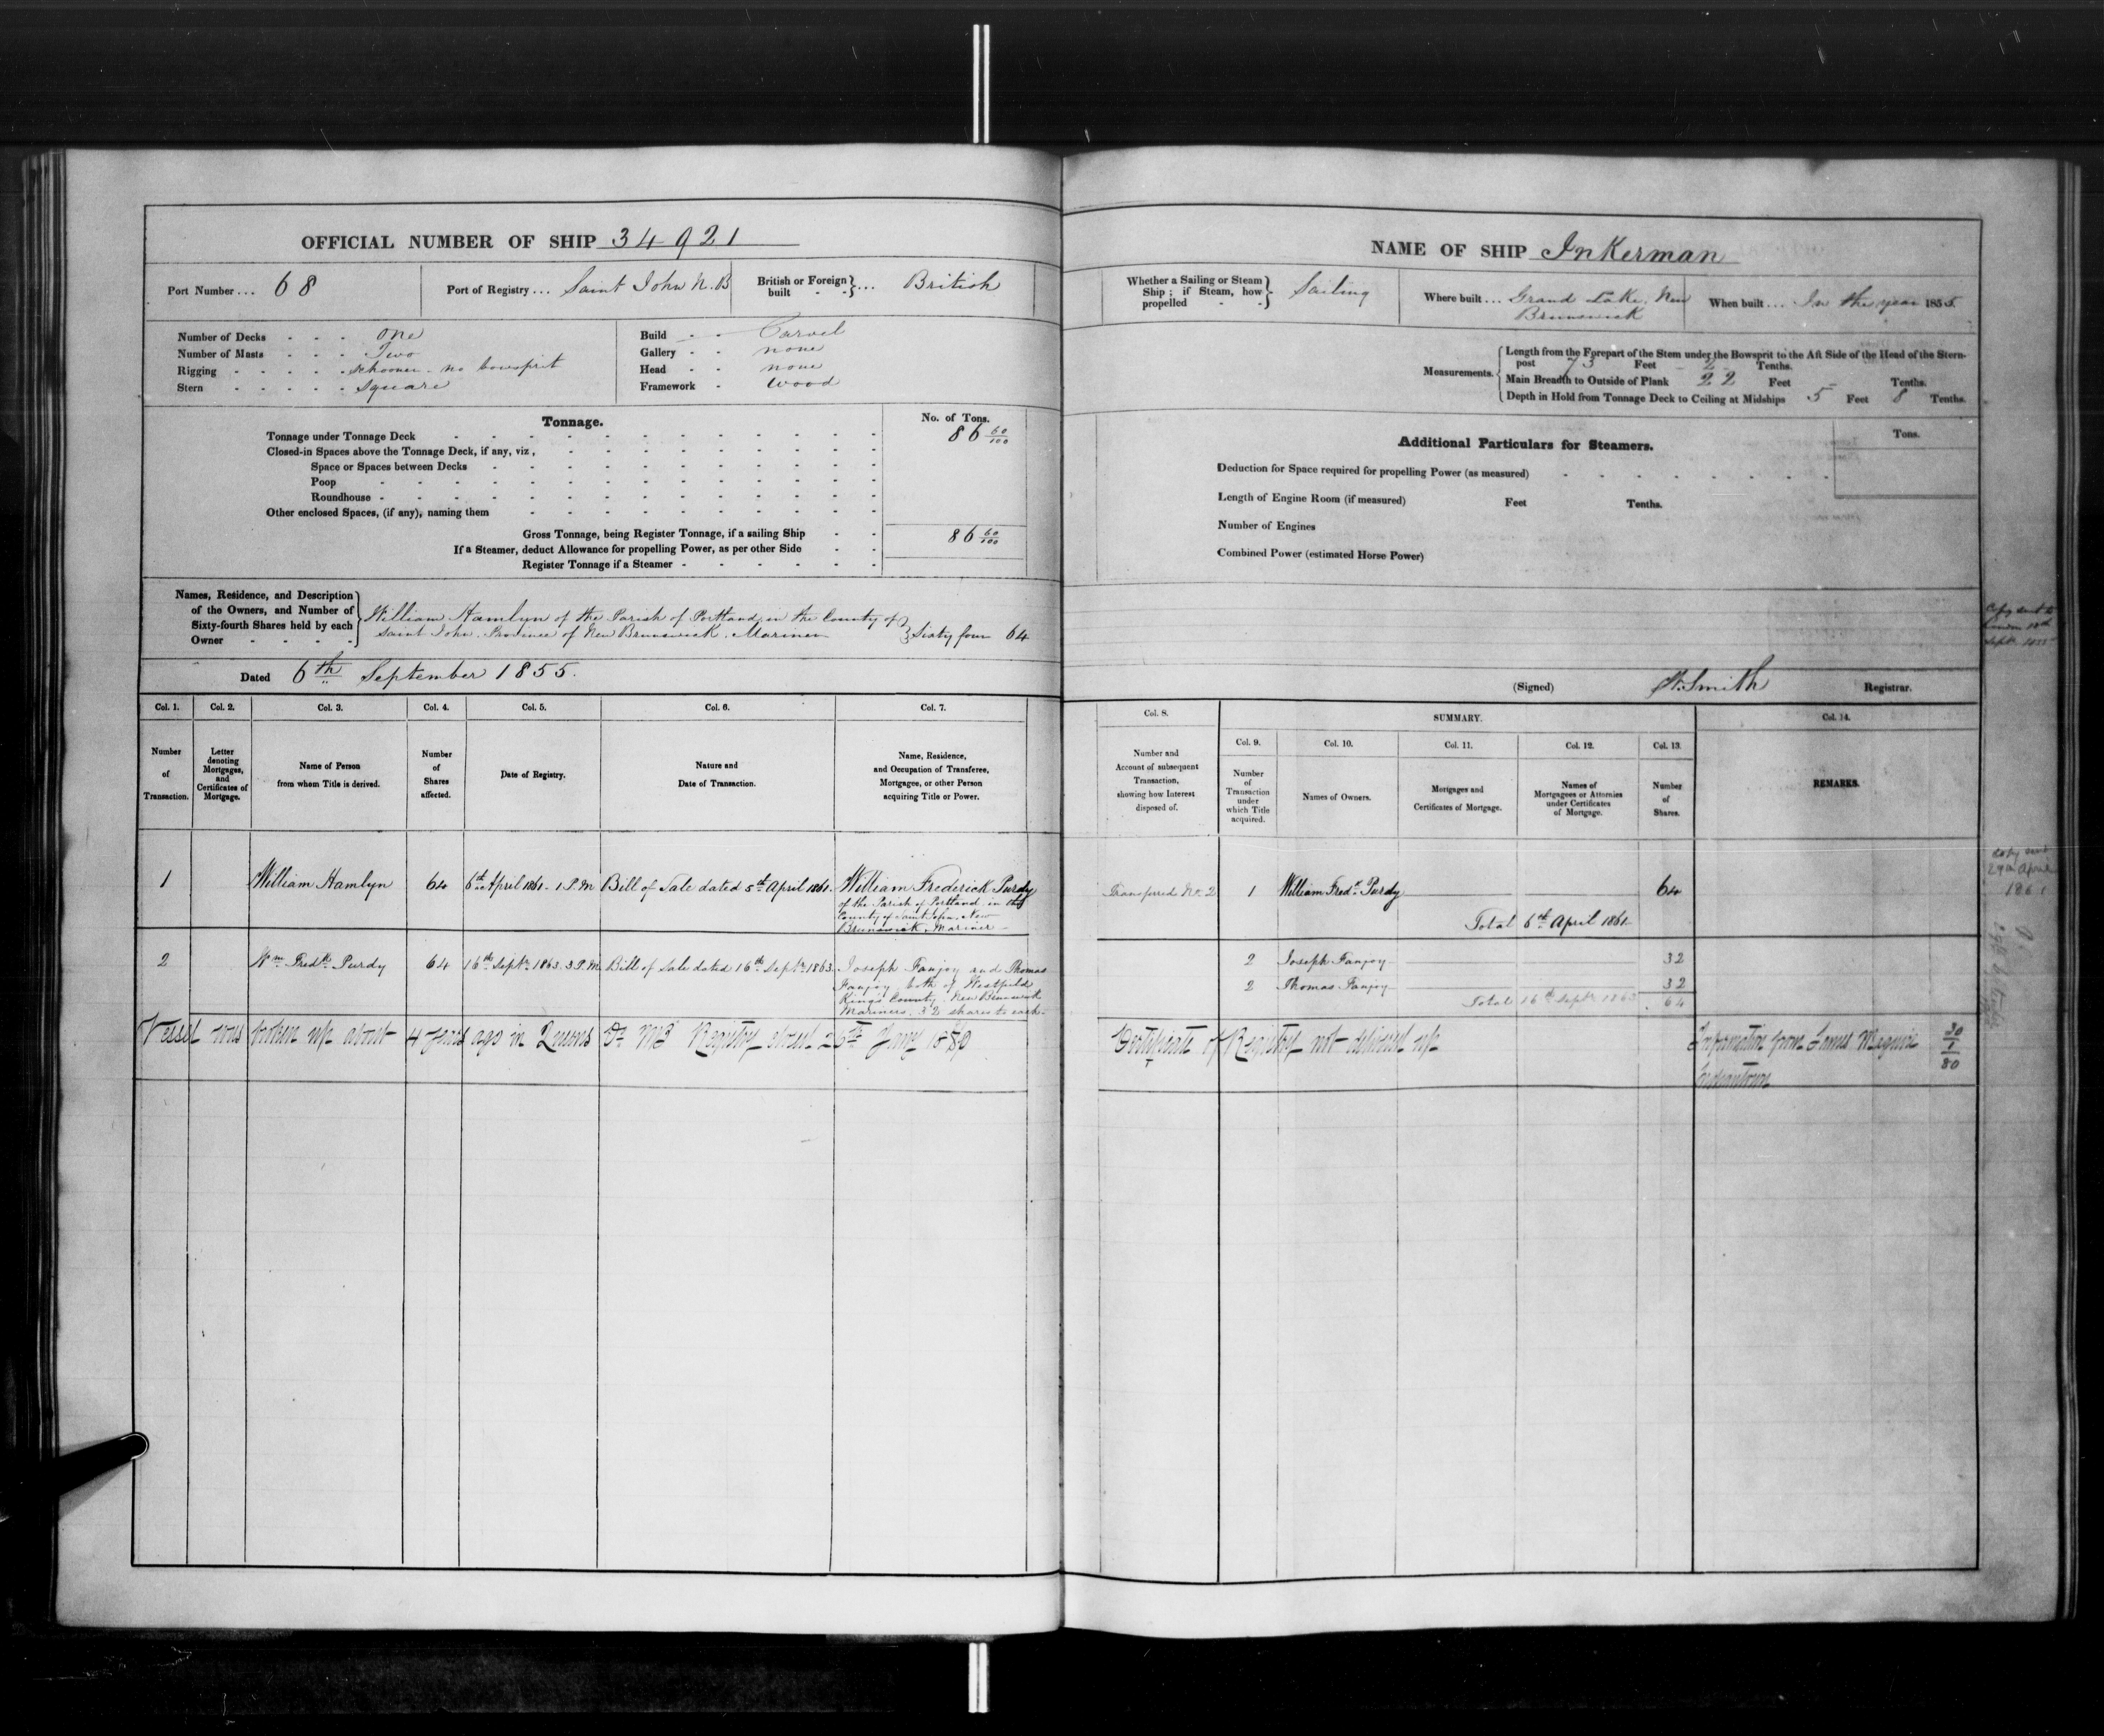 OFFICIAL NUMBER OF SHIP 34921
Port Number ... 68
Port of Registry ... Saint John N.B
British or Foreign built } ... British
Number of Decks - - - one
Number of Masts - - - Two
Rigging - - - - - schooner - no bowsprit
Stern - - - - - square
Build - - Carvel
Gallery - - none
Head - - none
Framework - wood
Tonnage.
No. of Tons.
Tonnage under Tonnage Deck 86 60/100
Closed-in Spaces above the Tonnage Deck, if any, viz,
Space or Spaces between Decks
Poop
Roundhouse
Other enclosed Spaces, (if any), naming them
Gross Tonnage, being Register Tonnage, if a sailing Ship 86 60/100
If a Steamer, deduct Allowance for propelling Power, as per other Side
Register Tonnage if a Steamer
Names, Residence, and Description
of the Owners, and Number of
Sixty-fourth Shares held by each
Owner
William Hamlyn of the Parish of Portland, in the County of
Saint John Province of New Brunswick. Mariner } Sixty four 64
Dated 6th September 1855.
Col. 1. Col. 2. Col. 3. Col. 4. Col. 5. Col. 6. Col. 7.
Number of Transaction.
Letter denoting Mortgages, and Certificates of Mortgage.
Name of Person from whom Title is derived.
Number of Shares affected.
Date of Registry.
Nature and Date of Transaction.
Name, Residence, and Occupation of Transferee, Mortgagee, or other Person acquiring Title or Power.
1 William Hamlyn 64 6th April 1861 - 1 P.M Bill of Sale dated 5th April 1861. William Frederick Purdy
of the Parish of Portland in the
County of Saint John, New
Brunswick, Mariner
2 Wm Fredk Purdy 64 16th Septr 1863. 3 P.M Bill of Sale dated 16th Septr 1863. Joseph Fanjoy and Thomas
Fanjoy both of Westfield
Kings County. New Brunswick
Mariners. 32 shares to each.
Vessel was broken up about 4 years ago in Queens Registry closed Jany 1880
NAME OF SHIP Inkerman
Whether a Sailing or Steam Ship; if Steam, how propelled } Sailing
Where built ... Grand Lake, New
Brunswick
When built ... In the year 1855.
Measurements.
Length from the Forepart of the Stem under the Bowsprit to the Aft Side of the Head of the Stern-
post 73 Feet 2 Tenths.
Main Breadth to Outside of Plank 22 Feet - Tenths.
Depth in Hold from Tonnage Deck to Ceiling at Midships 5 Feet 8 Tenths.
Additional Particulars for Steamers.
Tons.
Deduction for Space required for propelling Power (as measured)
Length of Engine Room (if measured) Feet Tenths.
Number of Engines
Combined Power (estimated Horse Power)
Copy sent to
London
Septr 1855
(Signed) Smith Registrar.
Col. 8. SUMMARY. Col. 14.
Col. 9. Col. 10. Col. 11. Col. 12. Col. 13.
Number and Account of subsequent Transaction, showing how Interest disposed of.
Number of Transaction under which Title acquired.
Names of Owners.
Mortgages and Certificates of Mortgage.
Names of Mortgagees or Attornies under Certificates of Mortgage.
Number of Shares.
REMARKS.
Transferred No. 2 1 William Fredk Purdy 64
Total 6th April 1861
Copy sent
29th April
1861
2 Joseph Fanjoy 32
2 Thomas Fanjoy 32
Total 16th Septr 1863 64
Certificate of Registry not delivered up
Information from James 30/1/80
Indiantown